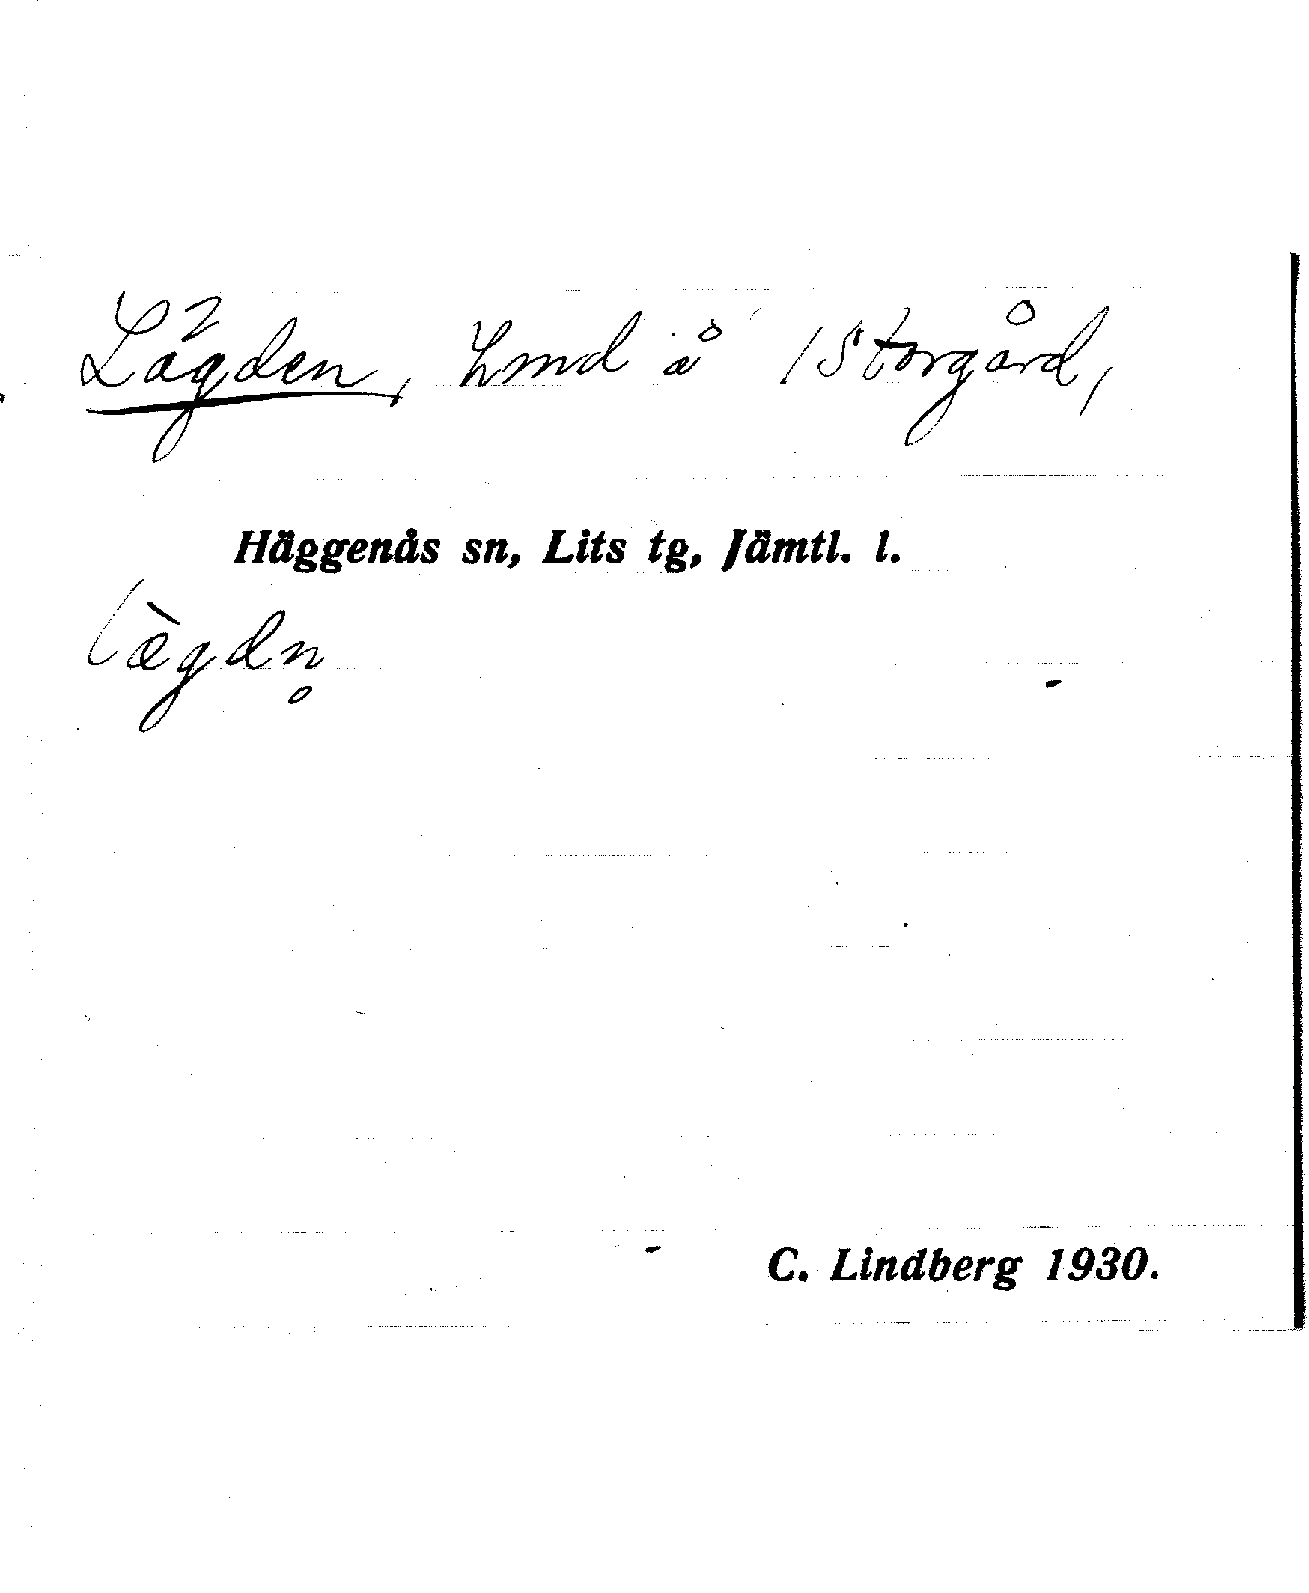 Lägden, hmd å 1 Storgård,
Häggenås sn, Lits tg, Jämtl. l.
læ̀gdn̥
C. Lindberg 1930.